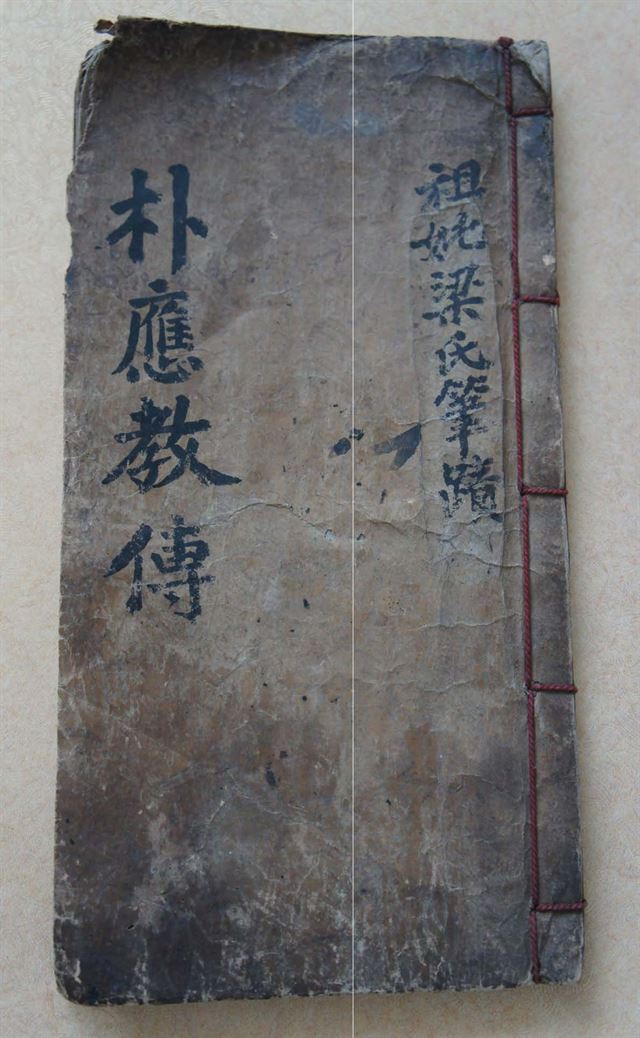 祖妣梁氏筆蹟
朴應教傳